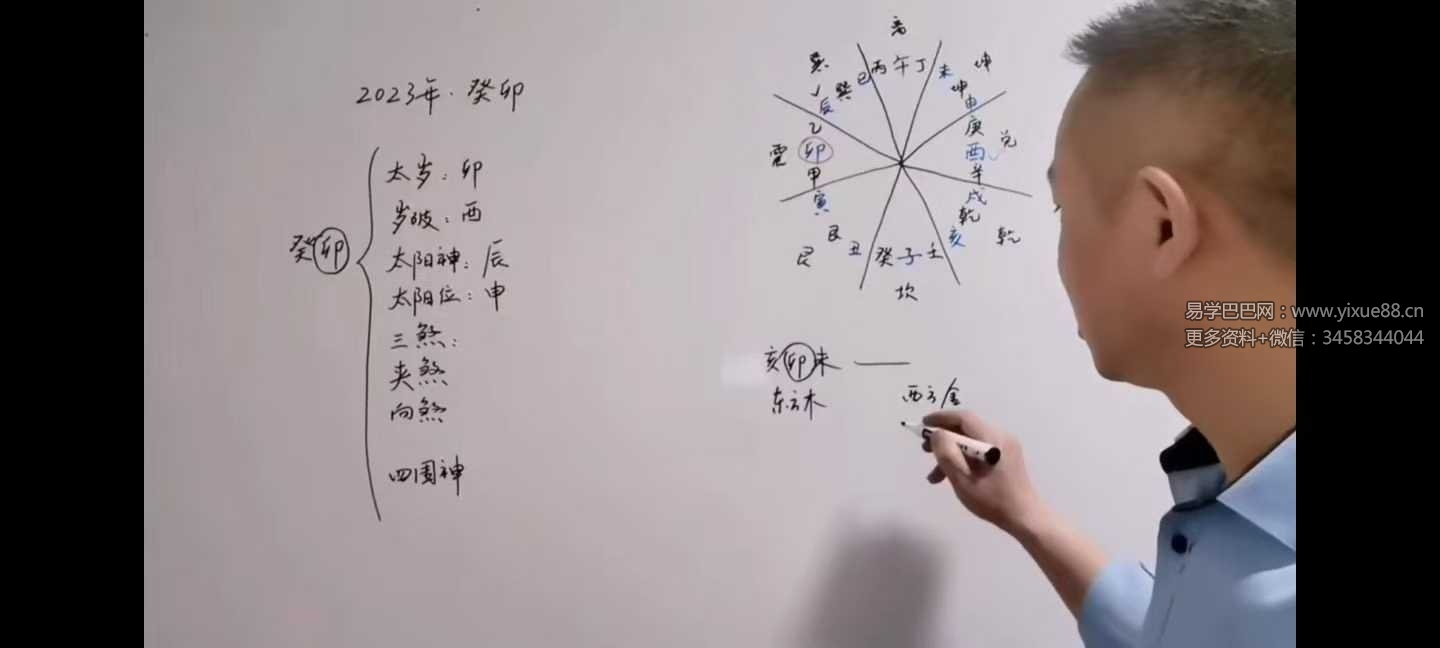 2023年·癸卯
癸卯
太岁：卯
岁破：酉
太阳神：辰
太阳位：申
三煞：
夹煞
向煞
四围神
离
巽
坤
丙午丁
辰巽巳
未坤申
乙
卯
甲
震
庚
酉
辛
兑
寅
艮
丑
艮
戌
乾
亥
乾
癸子壬
坎
亥卯未 ——
东方木
西方金
易学巴巴网：www.yixue88.cn
更多资料+微信：3458344044